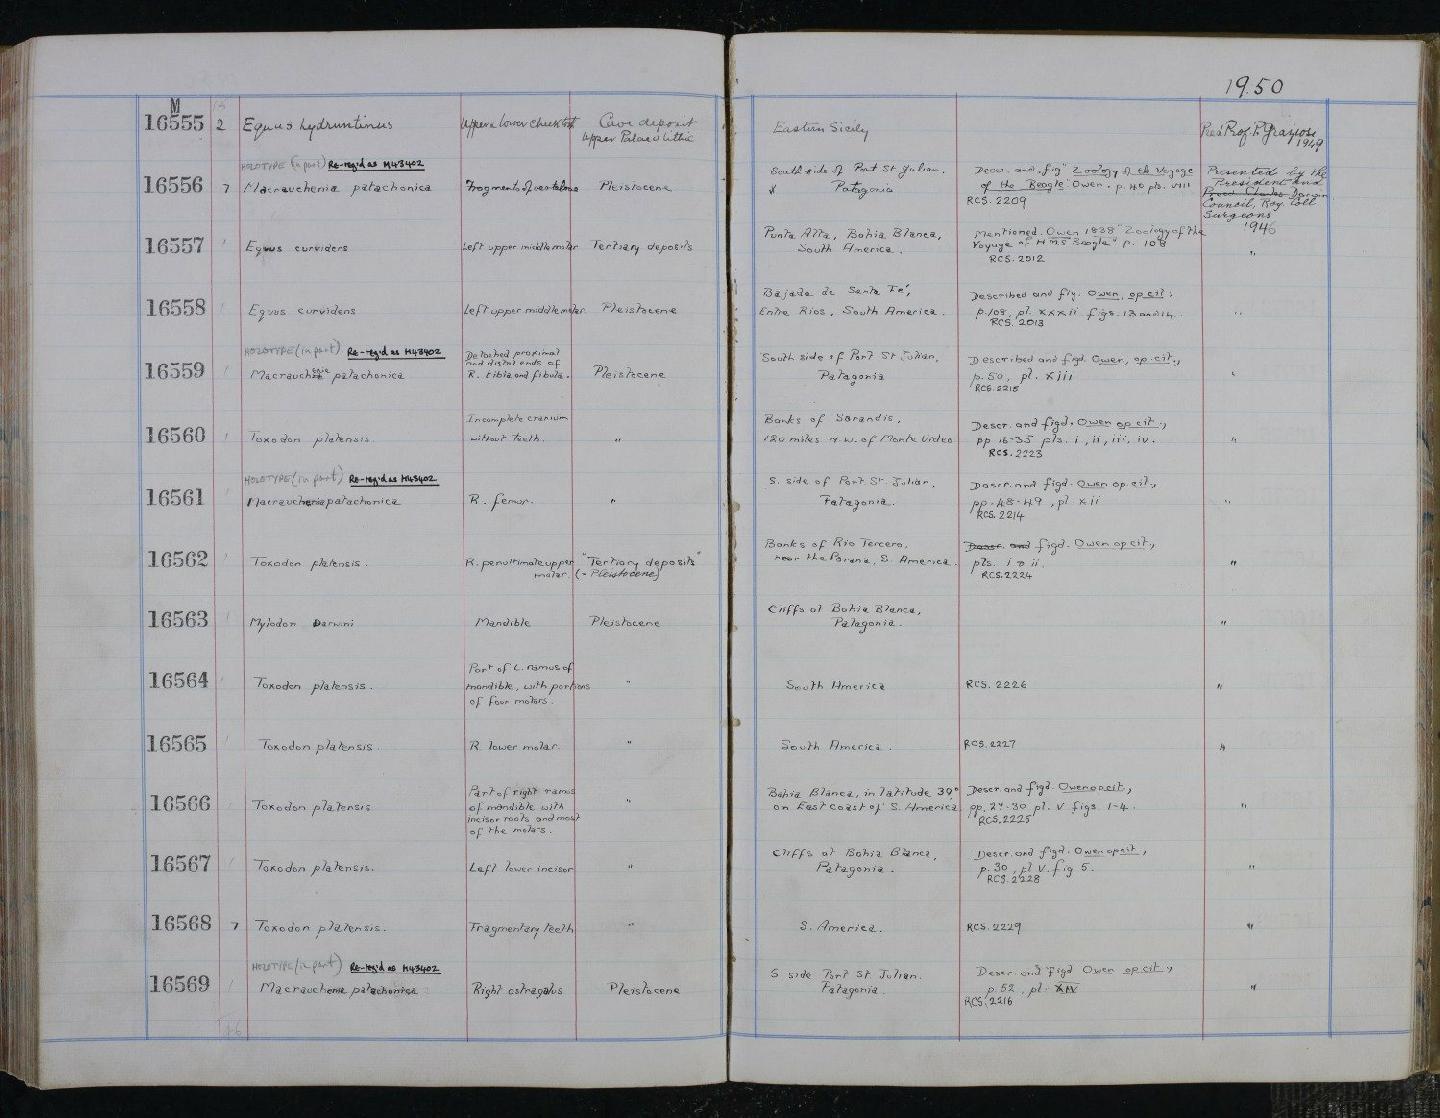 1950
M
16555 2 Equus hydruntinus Upper & lower cheek teeth Cave deposit Eastern Sicily Pres. Prof. P. Graziosi
Upper Palaeolithic 1949
HOLOTYPE (in part) Re-reg'd as M43402
16556 7 Macrauchenia patachonica Fragments of vertebrae Pleistocene South side of Port St Julian, Descr. and fig. "Zoology of the Voyage Presented by the
Patagonia of the Beagle" Owen. p. 40 pls. VIII President and
RCS. 2209 Council, Roy. Coll
Surgeons
1946
16557 1 Equus curvidens Left upper middle molar Tertiary deposits Punta Alta, Bahia Blanca, Mentioned. Owen 1838 "Zoology of the
South America. Voyage of HMS Beagle" p. 108 "
RCS. 2012
16558 1 Equus curvidens Left upper middle molar Pleistocene Bajada de Santa Fe, Described and fig. Owen, op cit.;
Entre Rios, South America. p. 108, pl. xxxii figs. 13 and 14. "
RCS. 2013
HOLOTYPE (in part) Re-reg'd as M43402
16559 1 Macrauchenia patachonica Detached proximal
and distal ends of
R. tibia and fibula. Pleistocene South side of Port St Julian, Described and figd. Owen, op. cit.,
Patagonia p. 50, pl. xiii "
RCS. 2215
16560 1 Toxodon platensis. Incomplete cranium
without teeth. " Banks of Sarandis, Descr. and figd. Owen op cit.,
120 miles N.W. of Monte Video pp 16-35 pls. i, ii, iii, iv. "
RCS. 2223
HOLOTYPE (in part) Re-reg'd as M43402
16561 1 Macrauchenia patachonica R. femur. " S. side of Port St. Julian, Descr. and figd. Owen op cit.,
Patagonia. pp. 48-49, pl xii "
RCS. 2214
16562 1 Toxodon platensis. R. penultimate upper "Tertiary deposits" Banks of Rio Tercero, Descr. and figd. Owen op cit.,
molar. (= Pleistocene) near the Parana, S. America. pls. i & ii. "
RCS. 2224
16563 1 Mylodon Darwini Mandible Pleistocene Cliffs at Bahia Blanca,
Patagonia. "
16564 1 Toxodon platensis. Part of L. ramus of
mandible, with portions " South America RCS. 2226 "
of four molars.
16565 1 Toxodon platensis. R. lower molar. " South America. RCS. 2227 "
16566 1 Toxodon platensis Part of right ramus
of mandible with
incisor roots and most
of the molars. " Bahia Blanca, in latitude 39° Descr and figd. Owen op cit,
on East coast of S. America pp. 29-30 pl. V figs. 1-4. "
RCS. 2225
16567 1 Toxodon platensis. Left lower incisor " Cliffs at Bahia Blanca, Descr. and figd. Owen op cit,
Patagonia. p. 30, pl V. fig 5. "
RCS. 2228
16568 7 Toxodon platensis. Fragmentary teeth " S. America. RCS. 2229 "
HOLOTYPE (in part) Re-reg'd as M43402
16569 1 Macrauchenia patachonica Right astragalus Pleistocene S side Port St. Julian. Descr. and figd Owen op cit.,
Patagonia. p. 52, pl. XIV "
RCS. 2216